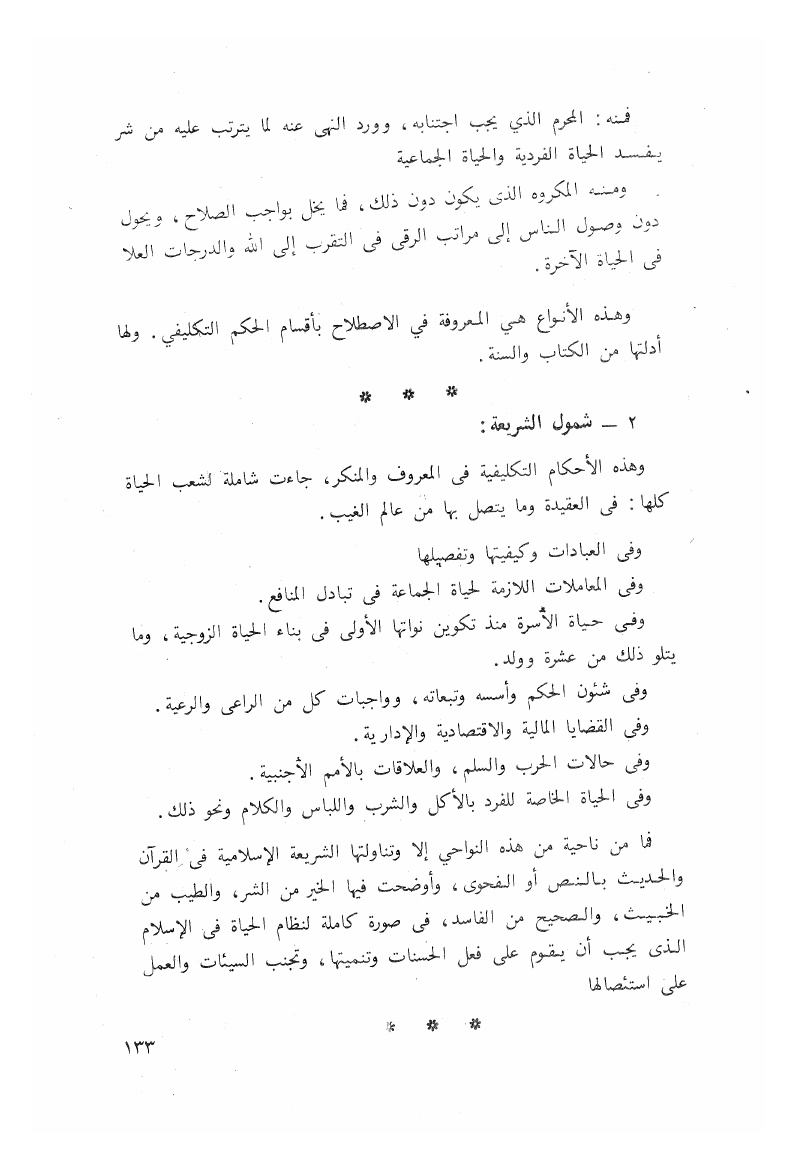 فمنه : المحرم الذي يجب اجتنابه ، وورد النهى عنه لما يترتب عليه من شر
يفسد الحياة الفردية والحياة الجماعية
ومنه المكروه الذى يكون دون ذلك ، فما يخل بواجب الصلاح ، ويحول
دون وصول الناس إلى مراتب الرقى فى التقرب إلى الله والدرجات العلا
فى الحياة الآخرة .
وهذه الأنواع هي المعروفة في الاصطلاح بأقسام الحكم التكليفي . ولها
أدلتها من الكتاب والسنة .
* * *
٢ – شمول الشريعة :
وهذه الأحكام التكليفية فى المعروف والمنكر ، جاءت شاملة لشعب الحياة
كلها : فى العقيدة وما يتصل بها من عالم الغيب .
وفى العبادات وكيفيتها وتفصيلها
وفى المعاملات اللازمة لحياة الجماعة فى تبادل المنافع .
وفى حياة الأسرة منذ تكوين نواتها الأولى فى بناء الحياة الزوجية ، وما
يتلو ذلك من عشرة وولد .
وفى شئون الحكم وأسسه وتبعاته ، وواجبات كل من الراعى والرعية .
وفى القضايا المالية والاقتصادية والإدارية .
وفى حالات الحرب والسلم ، والعلاقات بالأمم الأجنبية .
وفى الحياة الخاصة للفرد بالأكل والشرب واللباس والكلام ونحو ذلك .
فما من ناحية من هذه النواحي إلا وتناولتها الشريعة الإسلامية فى القرآن
والحديث بالنص أو الفحوى ، وأوضحت فيها الخير من الشر ، والطيب من
الخبيث ، والصحيح من الفاسد ، فى صورة كاملة لنظام الحياة فى الإسلام
الذى يجب أن يقوم على فعل الحسنات وتنميتها ، وتجنب السيئات والعمل
على استئصالها
* * *
١٣٣